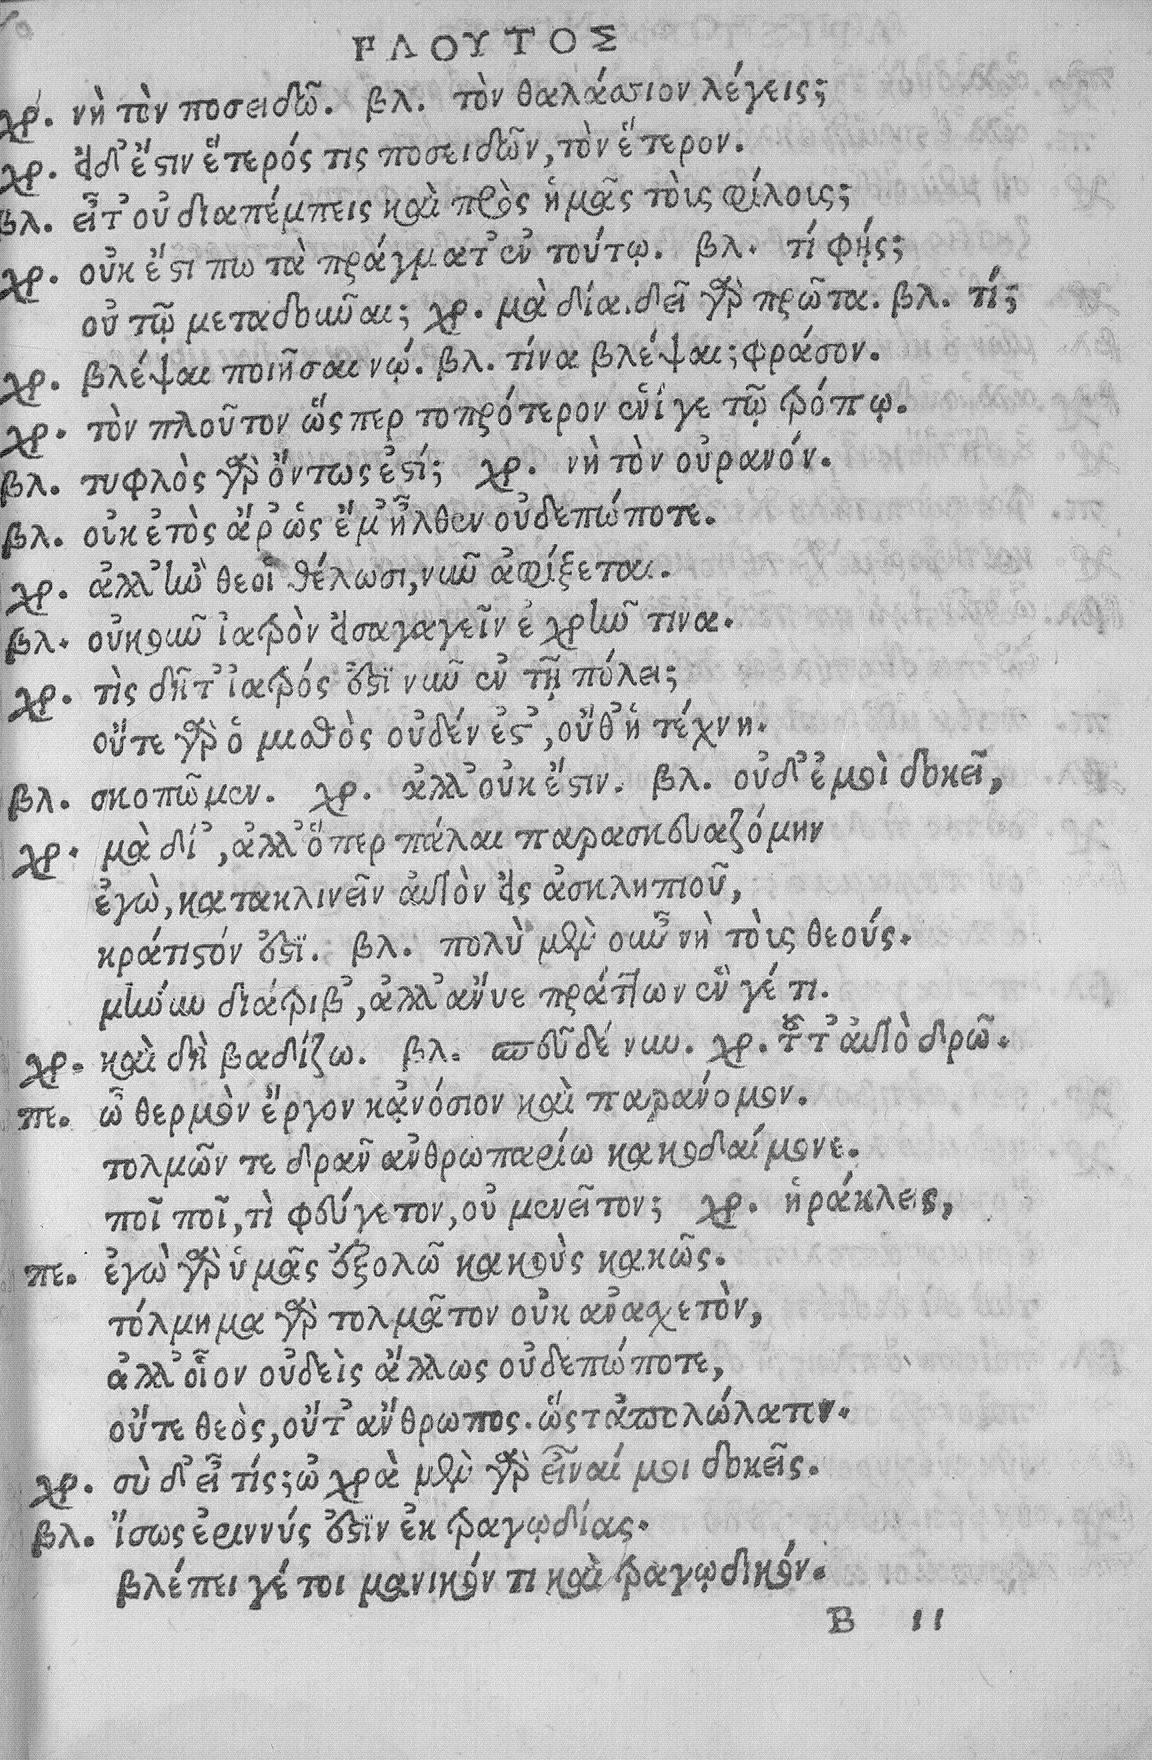 ΠΛΟΥΤΟΣ
χρ. νὴ τὸν ποσειδῶ. βλ. τὸν θαλάσσιον λέγεις;
χρ. εἰ δ' ἔστιν ἕτερός τις ποσειδῶν, τὸν ἕτερον.
βλ. εἶτ' οὐ διαπέμπεις καὶ πρὸς ἡμᾶς τοὺς φίλοις;
χρ. οὐκ ἔστι πω τὰ πράγματ' ἐν τούτῳ. βλ. τί φῄς;
οὐ τῷ μεταδοῦναι; χρ. μὰ δία. δεῖ γὰρ πρῶτα. βλ. τί;
χρ. βλέψαι ποιῆσαι νώ. βλ. τίνα βλέψαι; φράσον.
χρ. τὸν πλοῦτον ὥσπερ τοπρότερον ἑνί γε τῷ τρόπῳ.
βλ. τυφλὸς γὰρ ὄντως ἐστί; χρ. νὴ τὸν οὐρανόν.
βλ. οὐκ ἐτὸς ἄρ' ὡς ἔμ' ἦλθεν οὐδεπώποτε.
χρ. ἀλλ' ἢν θεοὶ θέλωσι, νῦν ἀφίξεται.
βλ. οὐκοῦν ἰατρὸν εἰσαγαγεῖν ἐχρῆν τινα.
χρ. τὶς δῆτ' ἰατρός ἐστὶ νῦν ἐν τῇ πόλει;
οὔτε γὰρ ὁ μισθὸς οὐδέν ἐστ', οὔθ' ἡ τέχνη.
βλ. σκοπῶμεν. χρ. ἀλλ' οὐκ ἔστιν. βλ. οὐδ' ἐμοὶ δοκεῖ,
χρ. μὰ δί', ἀλλ' ὅπερ πάλαι παρασκευαζόμην
ἐγὼ, κατακλινεῖν αὐτὸν εἰς ἀσκληπιοῦ,
κράτιστόν ἐστὶ. βλ. πολὺ μὲν οὖν νὴ τοὺς θεούς.
μή νυν διάτριβ', ἀλλ' ἄνυε πράττων ἕν γέ τι.
χρ. καὶ δὴ βαδίζω. βλ. σπεῦδέ νυν. χρ. τοῦτ' αὐτὸ δρῶ.
πε. ὦ θερμὸν ἔργον κἀνόσιον καὶ παράνομον.
τολμῶν τε δρᾶν ἀνθρωπαρίω κακοδαίμονε.
ποῖ ποῖ, τὶ φεύγετον, οὐ μενεῖτον; χρ. ἡράκλεις,
πε. ἐγὼ γὰρ ὑμᾶς ἐξολῶ κακοὺς κακῶς.
τόλμημα γὰρ τολμᾶτον οὐκ ἀνασχετὸν,
ἀλλ' οἷον οὐδεὶς ἄλλως οὐδεπώποτε,
οὔτε θεὸς, οὔτ' ἄνθρωπος. ὥστ' ἀπολώλατον.
χρ. σὺ δ' εἶ τίς; ὠχρὰ μὲν γὰρ εἶναί μοι δοκεῖς.
βλ. ἴσως ἐριννύς ἐστὶν ἐκ τραγῳδίας.
βλέπει γέ τοι μανικόν τι καὶ τραγῳδικόν.
B ii